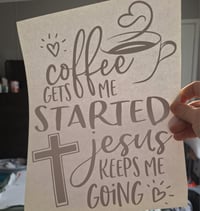 coffee
GETS ME
STARTED
jesus
KEEPS ME
GOING